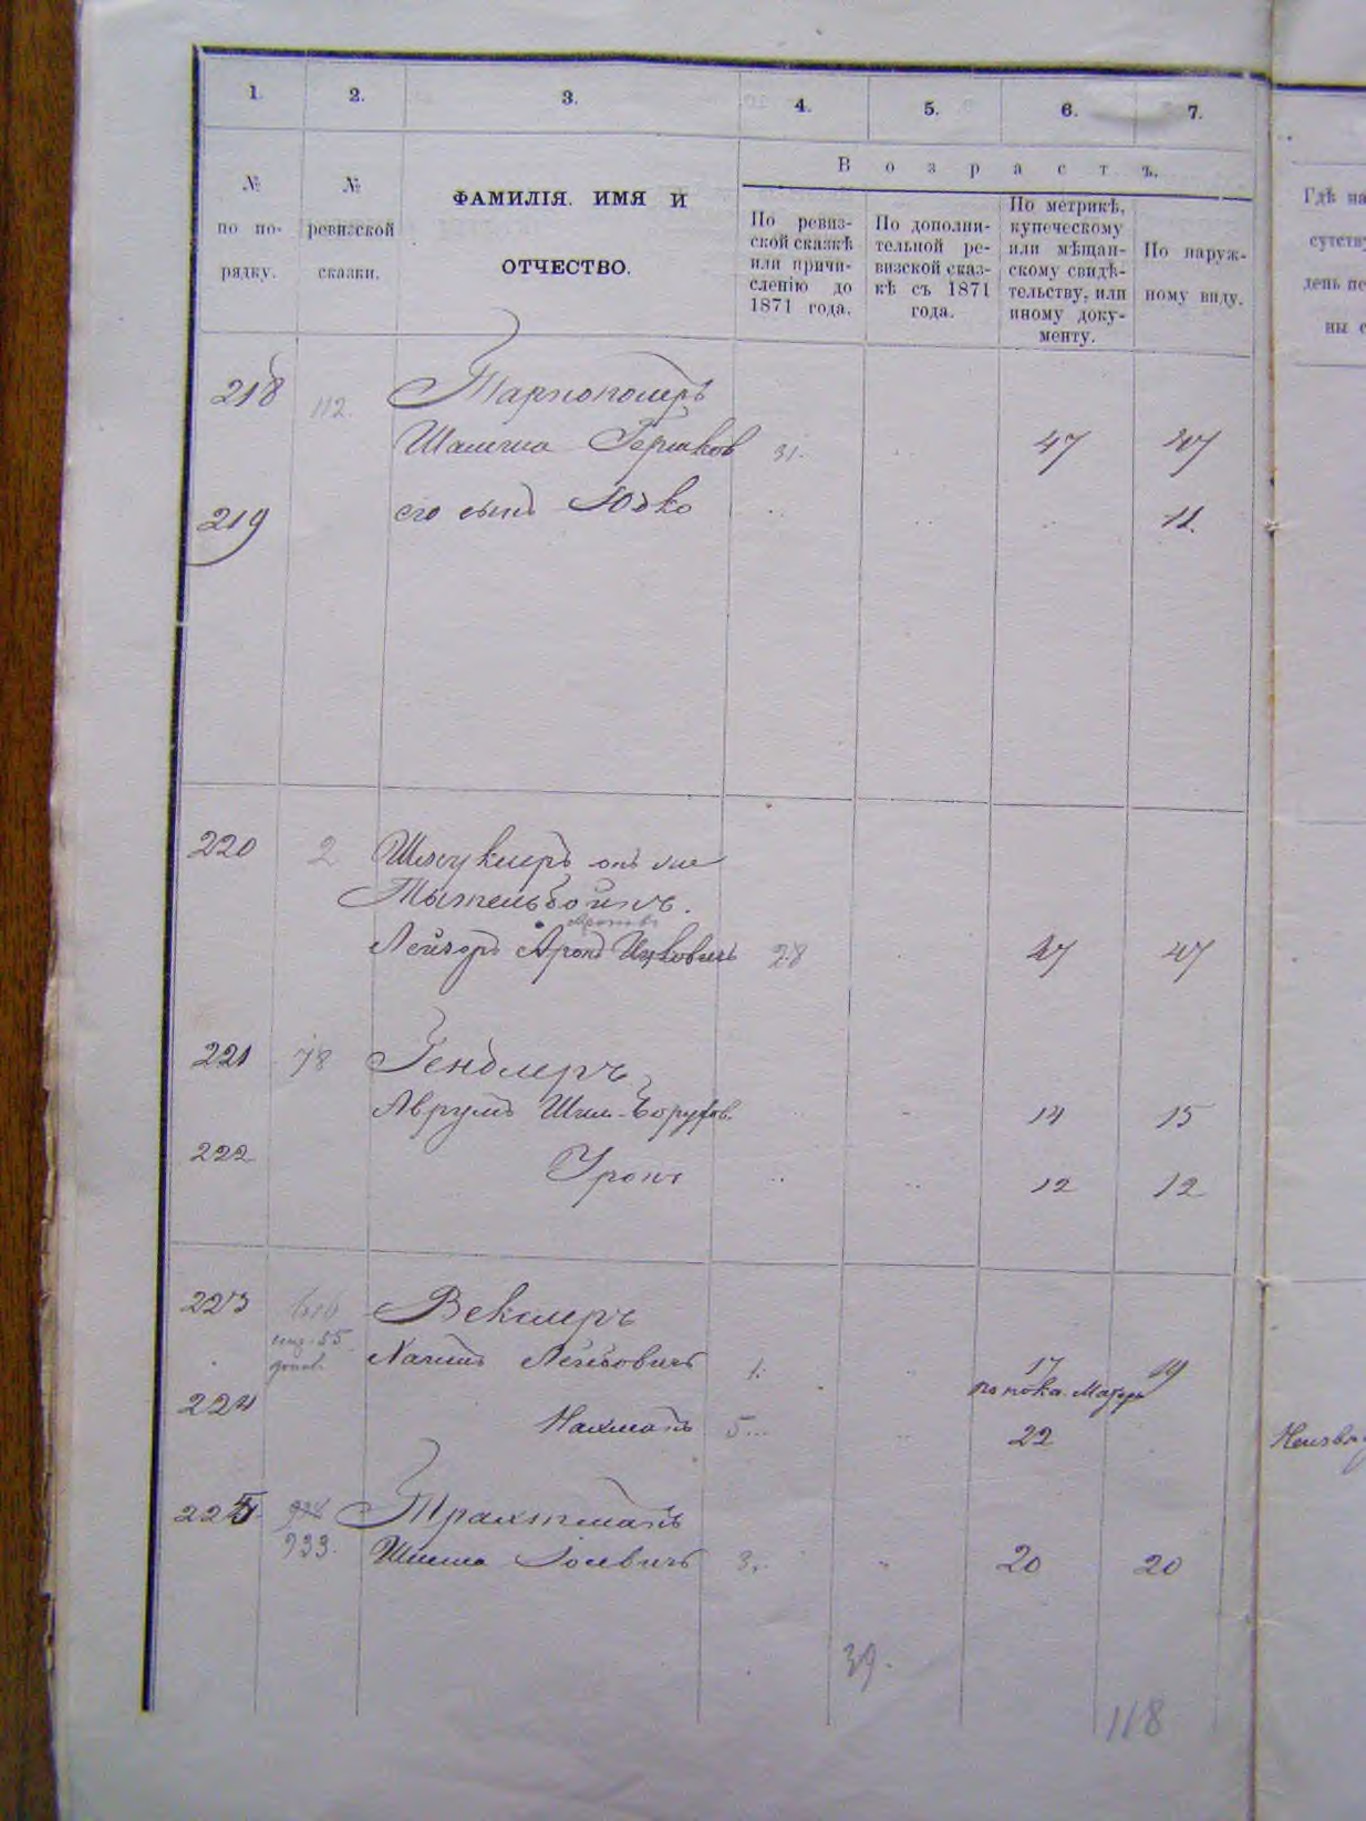 1. 2. 3. 4. 5. 6. 7.
№
по по-
рядку.
№
ревизской
сказки.
ФАМИЛІЯ. ИМЯ И
ОТЧЕСТВО.
Возрастъ.
По ревиз-
ской сказкѣ
или причи-
сленію до
1871 года.
По дополни-
тельной ре-
визской сказ-
кѣ съ 1871
года.
По метрикѣ,
купеческому
или мѣщан-
скому свидѣ-
тельству, или
иному доку-
менту.
По наруж-
ному виду.
Гдѣ на
сутств
день пе
ны с
218 112. Тарнополеръ
Шлема Гершков 31. 47 47
219 его сынъ Юдко 11.
220 2 онъ же
Тытельбоймъ.
Ароновъ
Лейзеръ Аронъ Ицковичъ 28 47 47
221 78 Гендлеръ
Аврумъ Шим-Борухов. 14 15
222 Уронъ 12 12
223 Векслеръ
55 Хаимъ Лейбовичъ 1. 17 19
по пока. Матери
224 Нахманъ 5 22
225 924 Трахтманъ
933. Шлема Іосевичъ 3. 20 20
39.
118